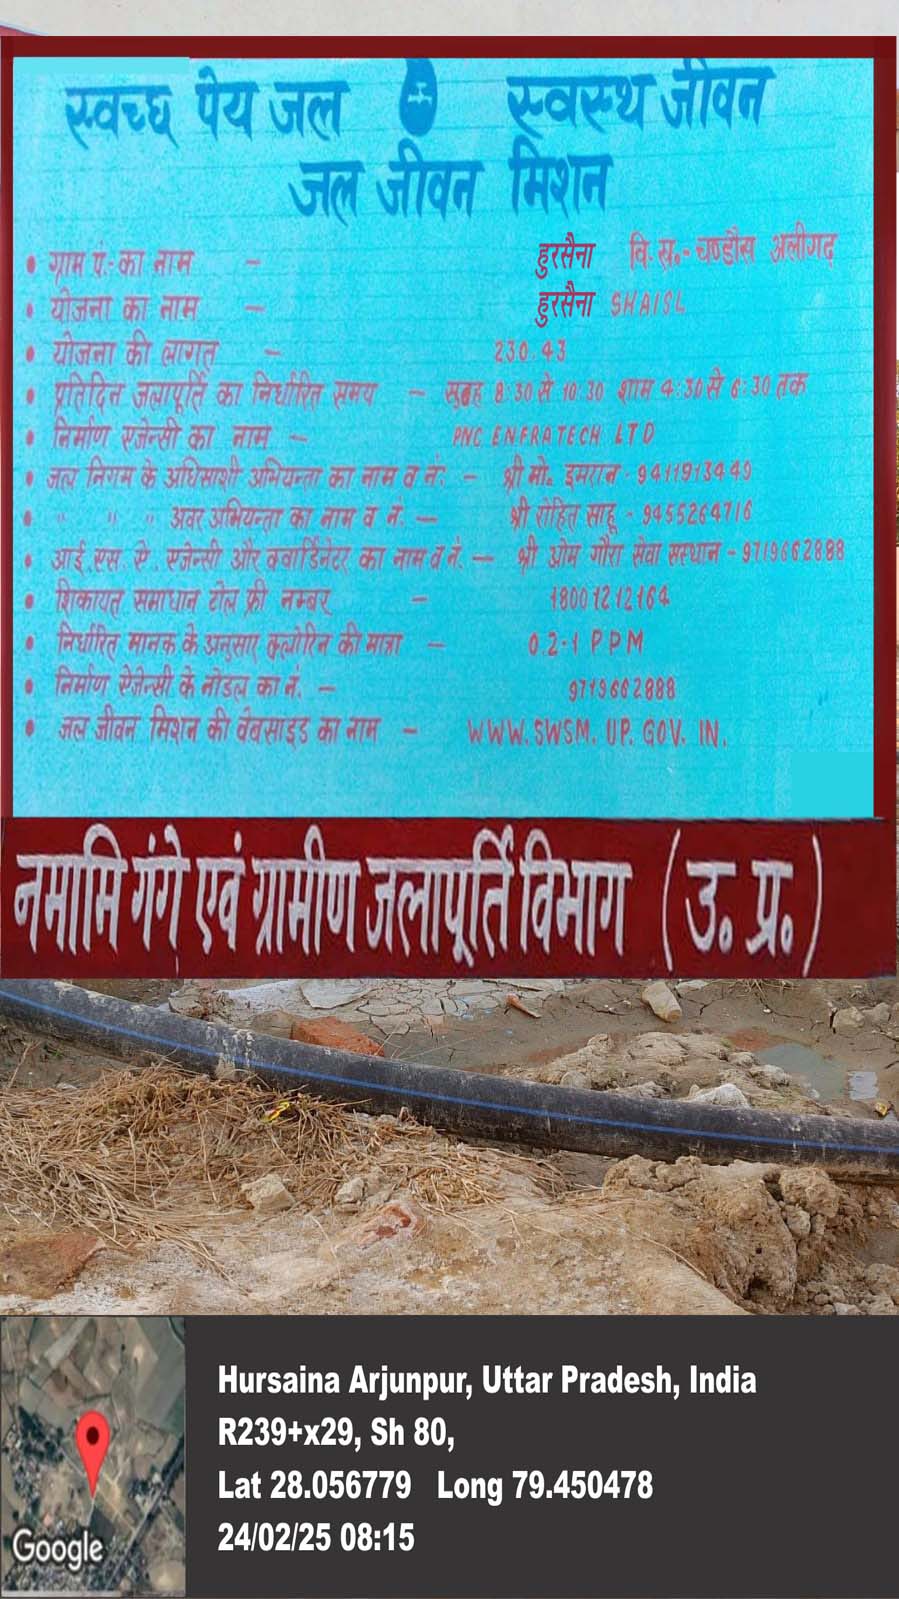 स्वच्छ पेय जल स्वस्थ जीवन
जल जीवन मिशन
• ग्राम पं.- का नाम - हुरसैना वि. ख.- चण्डौस अलीगढ़
• योजना का नाम - हुरसैना SHAISL
• योजना की लागत - 230.43
• प्रतिदिन जलापूर्ति का निर्धारित समय - सुबह 8:30 से 10:30 शाम 4:30 से 6:30 तक
• निर्माण एजेन्सी का नाम - PNC ENFRATECH LTD
• जल निगम के अधिसाशी अभियन्ता का नाम व नं. - श्री मो. इमरान - 9411913449
• " " " अवर अभियन्ता का नाम व नं. - श्री रोहित साहू - 9455264716
• आई. एस. ऐ. एजेन्सी और क्वार्डिनेटर का नाम व नं. - श्री ओम गौरा सेवा सस्थान - 9719662888
• शिकायत समाधान टोल फ्री नम्बर - 18001212164
• निर्धारित मानक के अनुसार क्लोरिन की मात्रा - 0.2-1 PPM
• निर्माण ऐजेन्सी के नोडल का नं. - 9719662888
• जल जीवन मिशन की वेबसाइड का नाम - WWW.SWSM.UP.GOV.IN.
नमामि गंगे एवं ग्रामीण जलापूर्ति विभाग (उ. प्र.)
Hursaina Arjunpur, Uttar Pradesh, India
R239+x29, Sh 80,
Lat 28.056779 Long 79.450478
24/02/25 08:15
Google